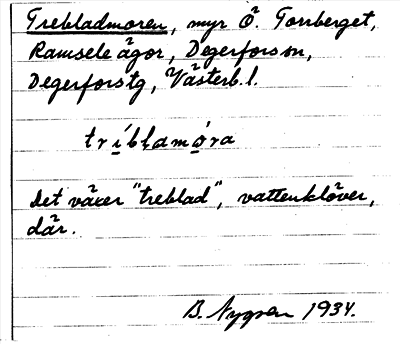 Trebladmoren, myr Ö. Torrberget,
Ramsele ägor, Degerfors sn,
Degerfors tg, Västerb. l.
tríblamóra
Det växer "treblad", vattenklöver,
där.
B. Nygren 1934.